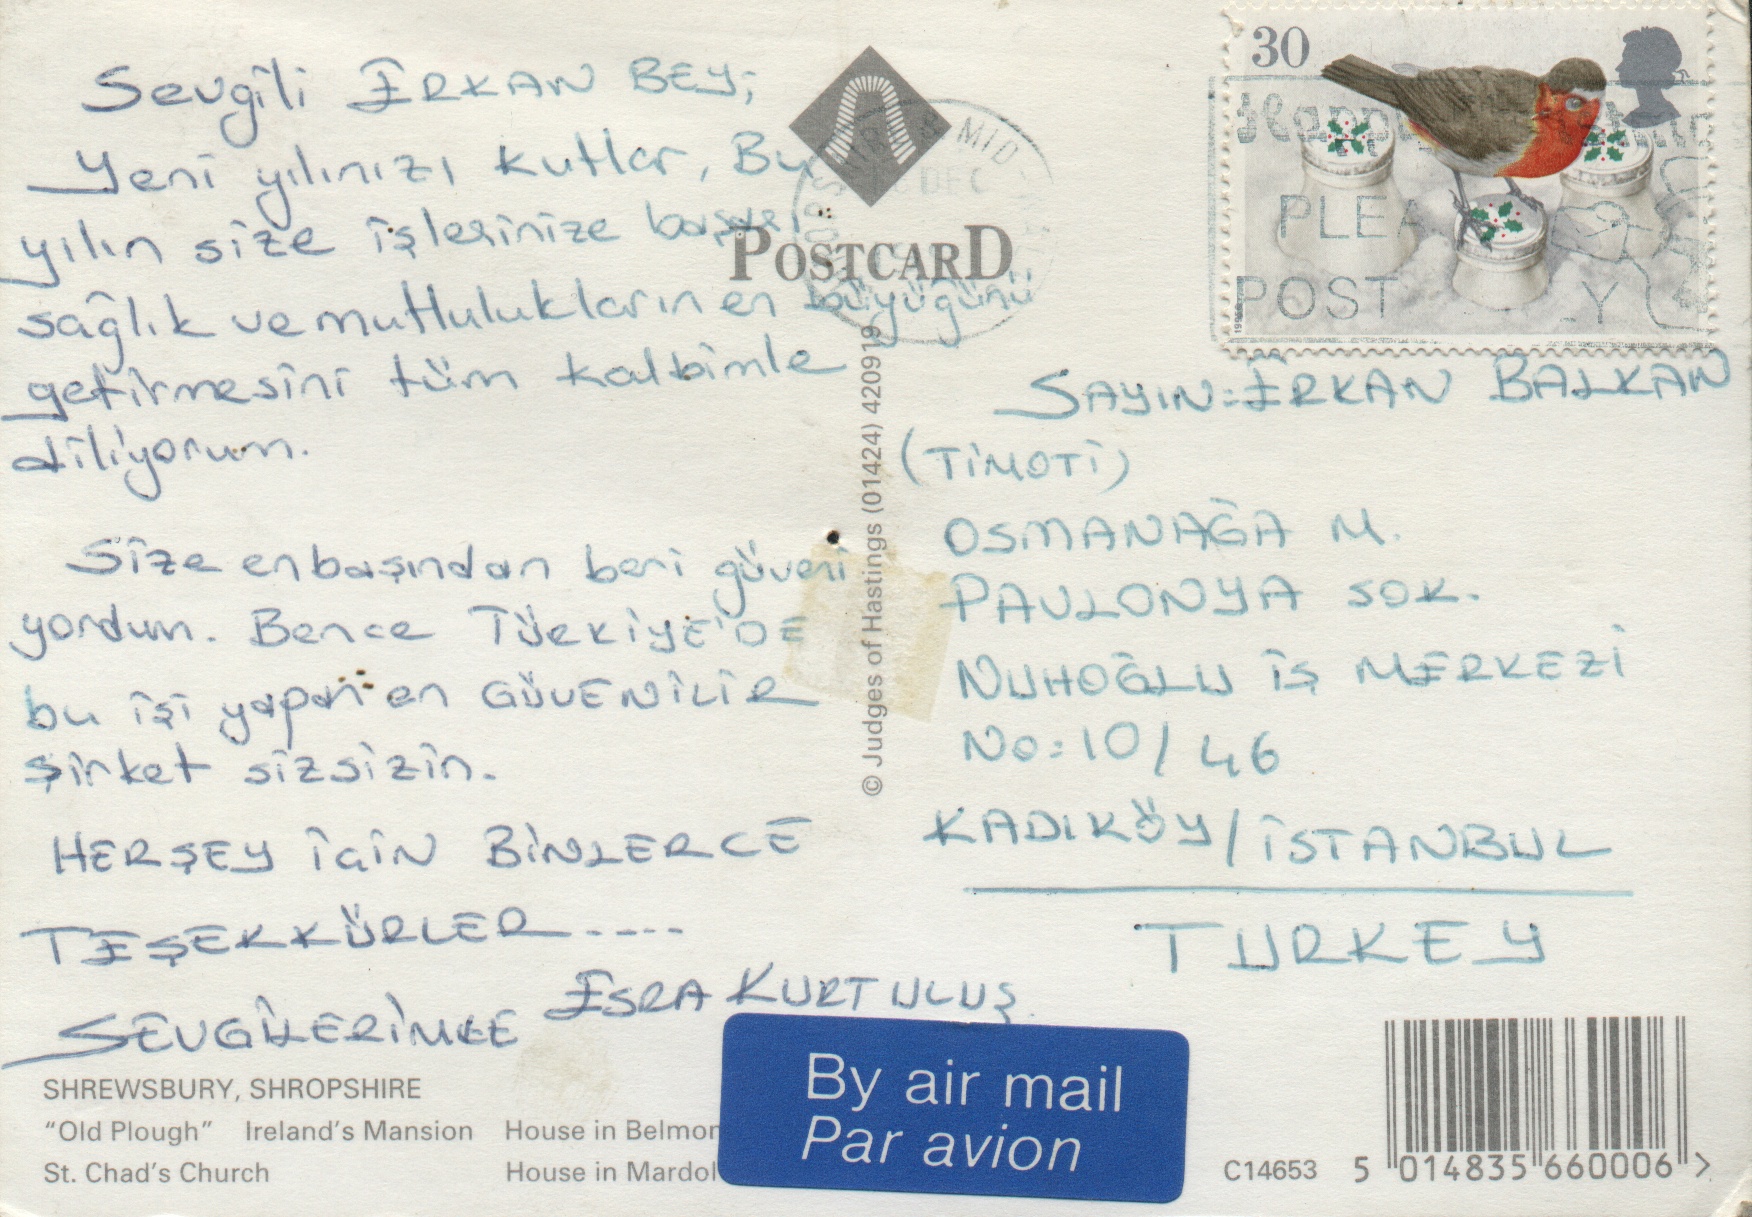 Sevgili ERKAN BEY;
Yeni yılınızı kutlar, Bu
yılın size işlerinize başarı
sağlık ve mutlulukların en büyüğünü
getirmesini tüm kalbimle
diliyorum.
Size enbaşından beri güveni
yordum. Bence TÜRKİYE'DE
bu işi yapan en GÜVENİLİR
şirket sizsizin.
HERŞEY İÇİN BİNLERCE
TEŞEKKÜRLER.....
ESRA KURTULUŞ
SEVGİLERİMLE
SHREWSBURY, SHROPSHIRE
"Old Plough" Ireland's Mansion House in Belmon
St. Chad's Church House in Mardol
POSTCARD
© Judges of Hastings (01424) 420919
30
MID
DEC
Happy
PLEA
POST Y
SAYIN: ERKAN BALKAN
(TİMOTİ)
OSMANAĞA M.
PAVLONYA SOK.
NUHOĞLU İŞ MERKEZİ
No: 10/46
KADIKÖY/İSTANBUL
TURKEY
By air mail
Par avion
C14653 5 014835 660006 >